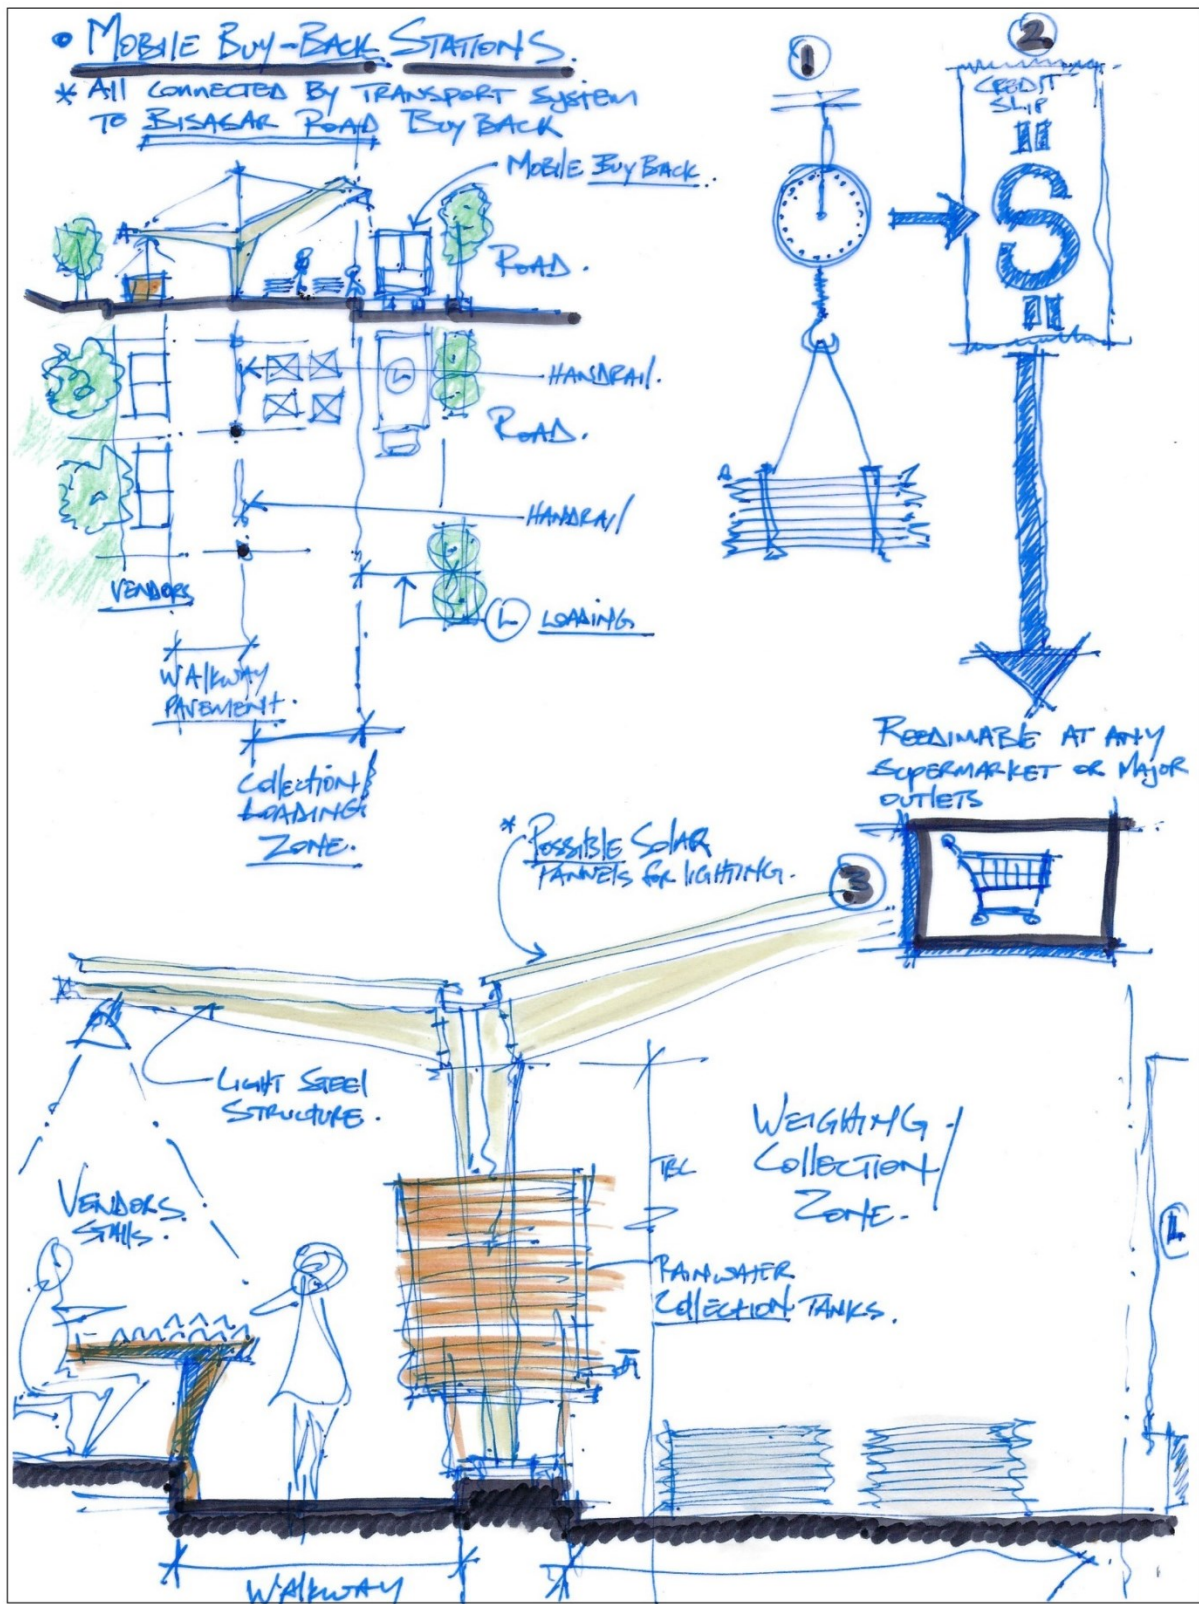 • MOBILE BUY-BACK STATIONS.
* All CONNECTED BY TRANSPORT SYSTEM
TO BISASAR ROAD BUY BACK
MOBILE BUY BACK.
ROAD.
HANDRAIL.
ROAD.
L
HANDRAIL
VENDORS
L LOADING
WALKWAY
PAVEMENT.
COLLECTION/
LOADING
ZONE.
1
2
CREDIT
SLIP
S
REEDIMABLE AT ANY
SUPERMARKET OR MAJOR
OUTLETS
3
* POSSIBLE SOLAR
PANNELS FOR LIGHTING.
LIGHT STEEL
STRUCTURE.
VENDORS
STALLS.
TBC
WEIGHING /
COLLECTION
ZONE.
L
RAINWATER
COLLECTION TANKS.
WALKWAY